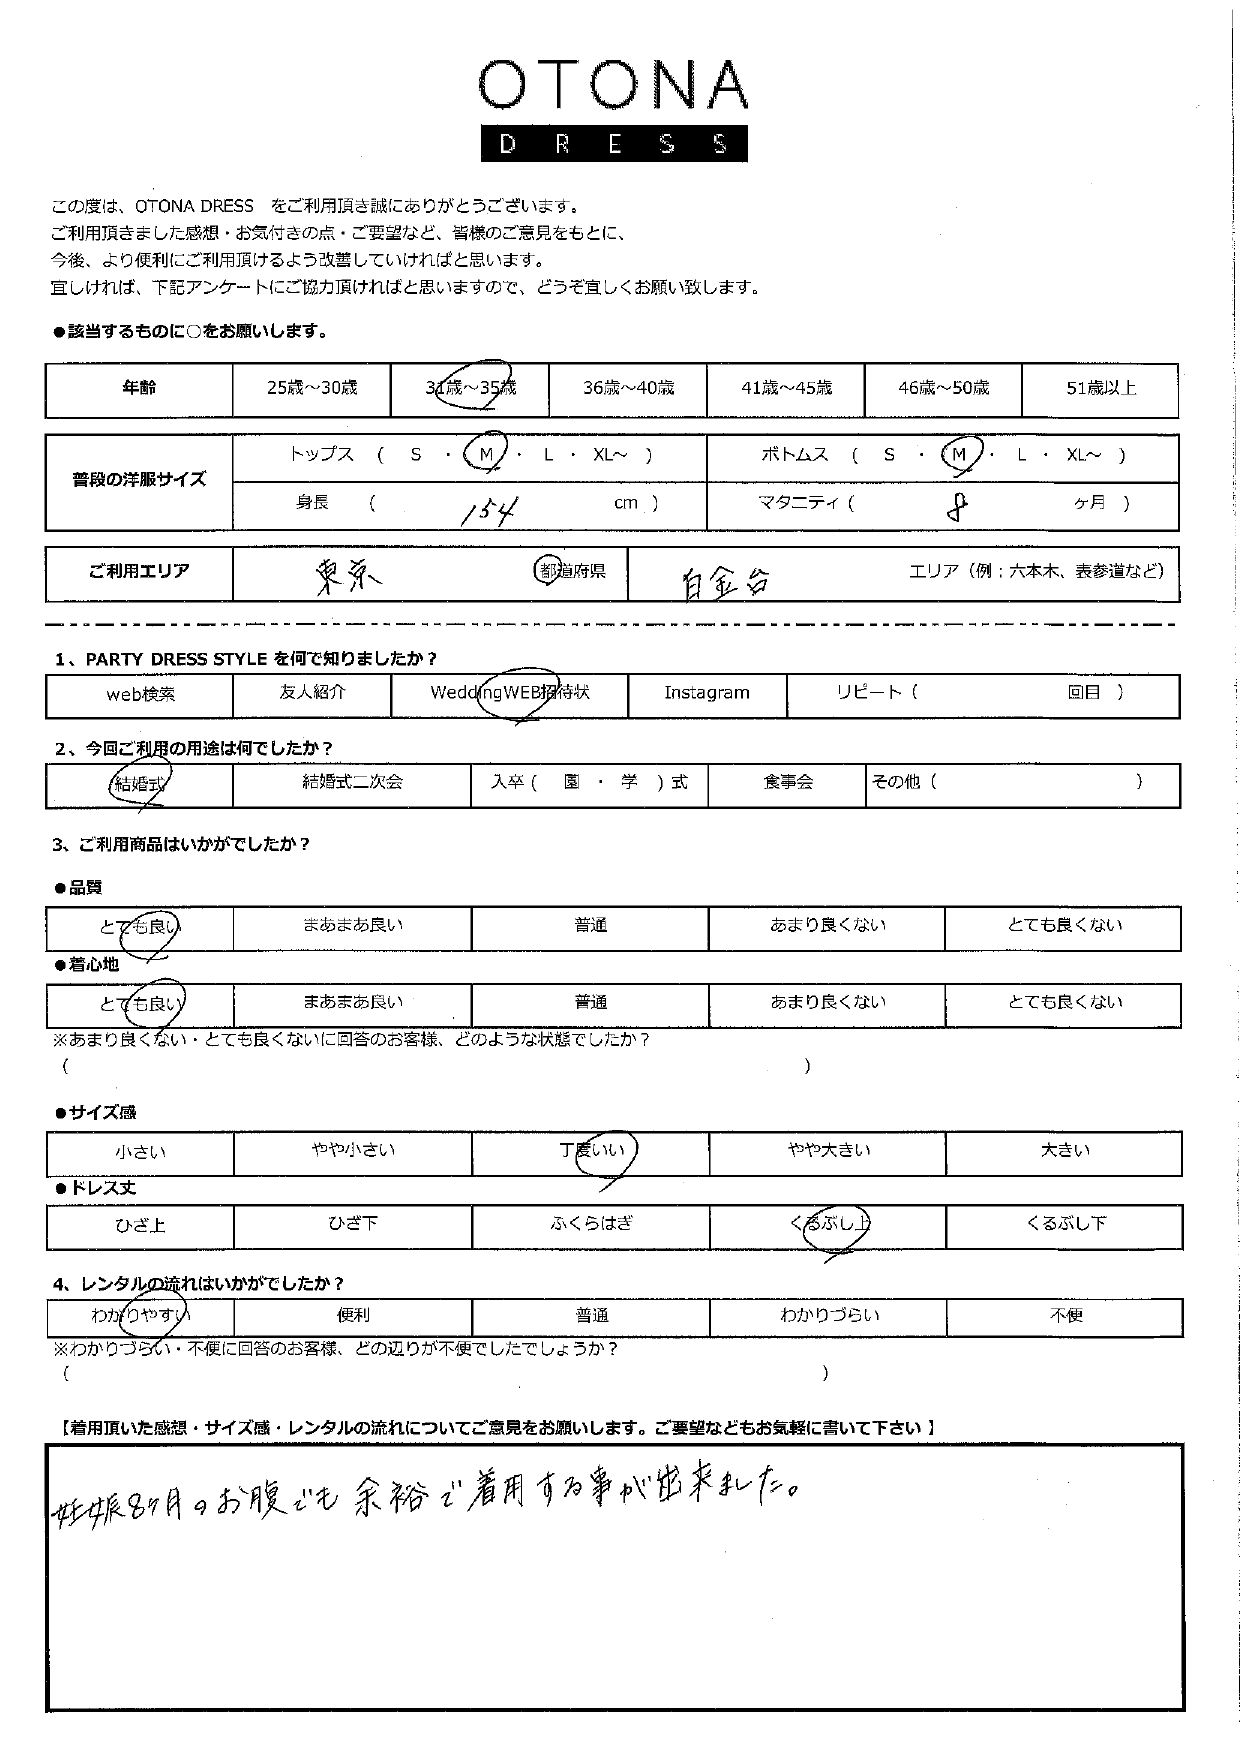 OTONA
DRESS
この度は、OTONA DRESS をご利用頂き誠にありがとうございます。
ご利用頂きました感想・お気付きの点・ご要望など、皆様のご意見をもとに、
今後、より便利にご利用頂けるよう改善していければと思います。
宜しければ、下記アンケートにご協力頂ければと思いますので、どうぞ宜しくお願い致します。
●該当するものに○をお願いします。
年齢 25歳～30歳 31歳～35歳 36歳～40歳 41歳～45歳 46歳～50歳 51歳以上
普段の洋服サイズ
トップス ( S ・ M ・ L ・ XL～ ) ボトムス ( S ・ M ・ L ・ XL～ )
身長 ( 154 cm ) マタニティ ( 8 ヶ月 )
ご利用エリア 東京 都道府県 白金台 エリア（例：六本木、表参道など）
1、PARTY DRESS STYLE を何で知りましたか？
web検索 友人紹介 WeddingWEB招待状 Instagram リピート ( 回目 )
2、今回ご利用の用途は何でしたか？
結婚式 結婚式二次会 入卒 ( 園 ・ 学 ) 式 食事会 その他 ( )
3、ご利用商品はいかがでしたか？
●品質
とても良い まあまあ良い 普通 あまり良くない とても良くない
●着心地
とても良い まあまあ良い 普通 あまり良くない とても良くない
※あまり良くない・とても良くないに回答のお客様、どのような状態でしたか？
( )
●サイズ感
小さい やや小さい 丁度いい やや大きい 大きい
●ドレス丈
ひざ上 ひざ下 ふくらはぎ くるぶし上 くるぶし下
4、レンタルの流れはいかがでしたか？
わかりやすい 便利 普通 わかりづらい 不便
※わかりづらい・不便に回答のお客様、どの辺りが不便でしたでしょうか？
( )
【着用頂いた感想・サイズ感・レンタルの流れについてご意見をお願いします。ご要望などもお気軽に書いて下さい】
妊娠8ヶ月のお腹でも余裕で着用する事が出来ました。